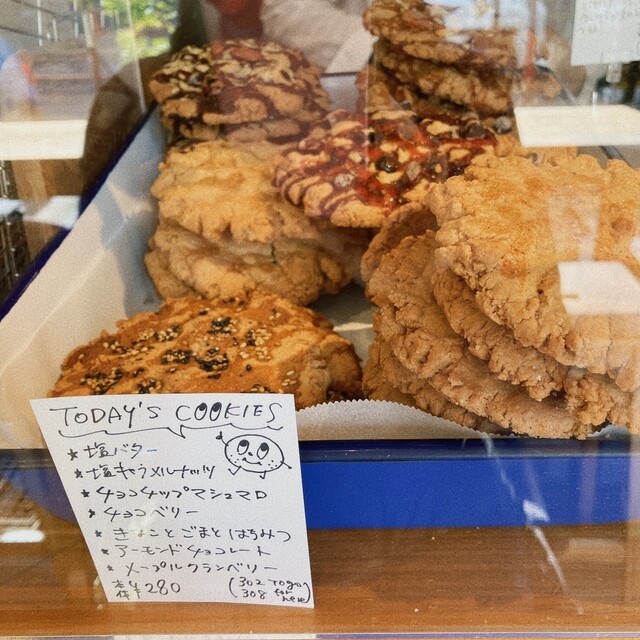 TODAY'S COOKIES
★ 塩バター
★ 塩キャラメルナッツ
★ チョコチップマシュマロ
★ チョコベリー
★ きなことごまとはちみつ
★ アーモンドチョコレート
★ メープルクランベリー
本体¥280 (302 to go 308 for here)